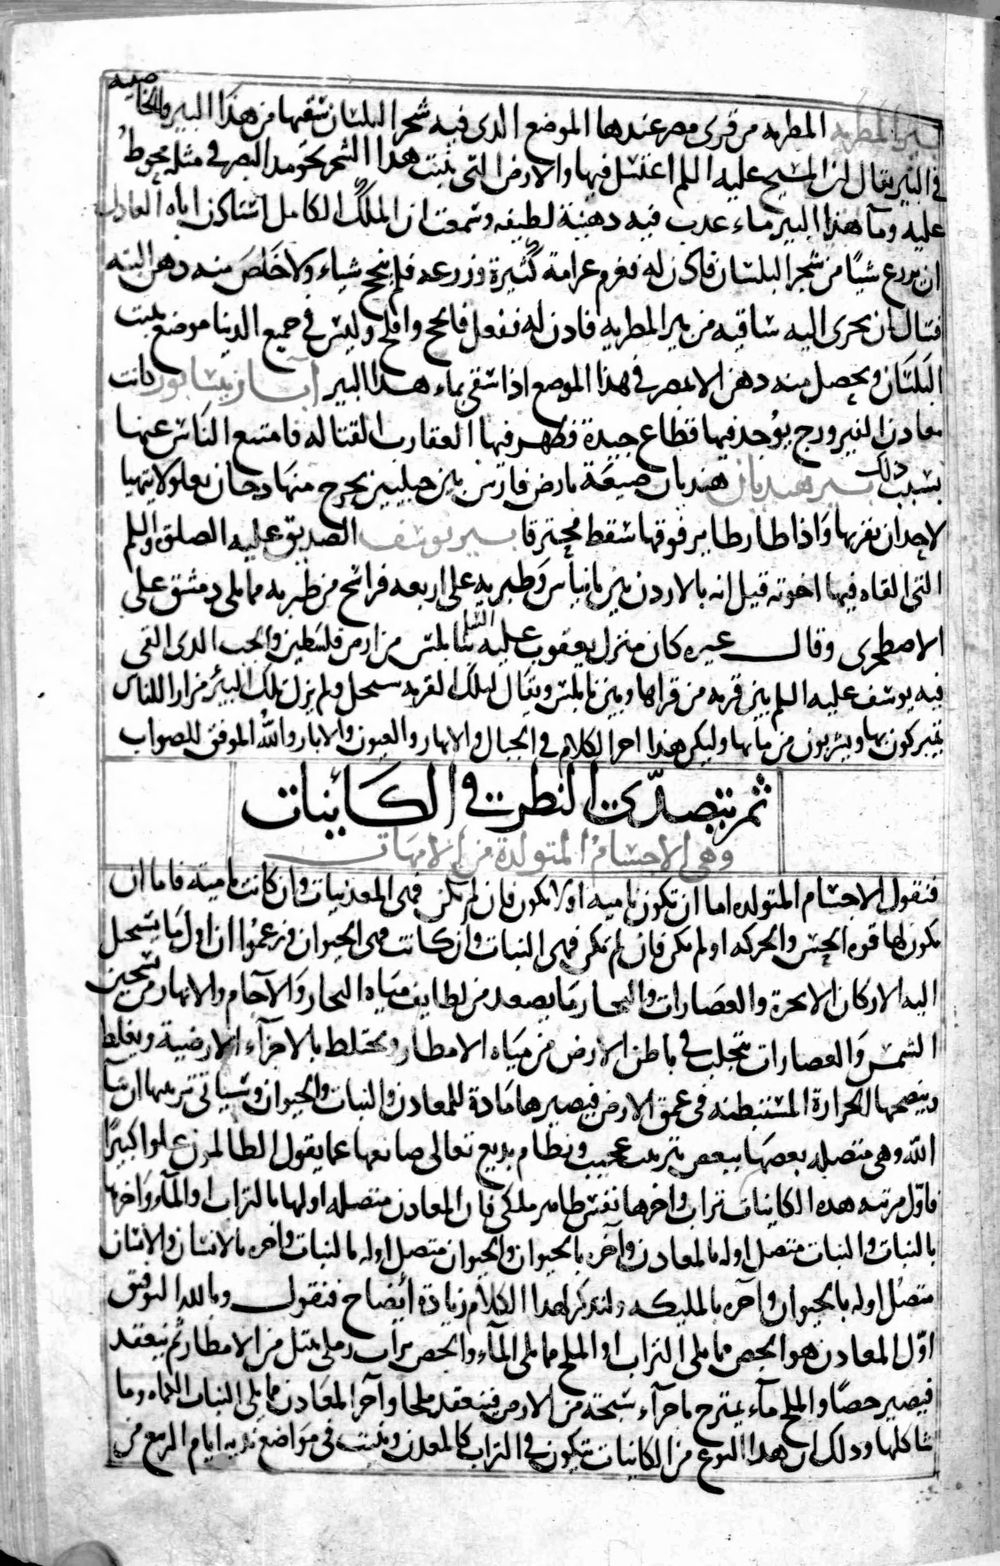 بير المطريه المطريه من قرى مصر عندها الموضع الدى فيه شجر البلسان سقيها من هذا البير والخاصيه
فى البير يقال ان المسيح عليه السلم اغتسل فيها والارض التى ينبت هدا الشجر نحو مد البصر فى مثله محوط
عليه وماء هذا البير ماء عدب فيه دهنية لطيفه وسمعت ان الملك الكامل استاذن اباه العادل
ان يزرع شيئا من شجر البلسان فاذن له فغرم غرامة كثيرة وزرعه فلم ينجح شياء ولا خلص منه دهن البته
فسال ان يجرى اليه ساقيه من بير المطريه فادن له ففعل فانجح وافلح وليس فى جميع الدنيا موضع ينبت
البلسان ويحصل منه دهن الا بمصر فى هذا الموضع اذا سقى بماء هدا البير آبار نيسابور كانت
معادن الفيروزج يوجد فيها قطاع جيدة فظهر فيها العقارب القتاله فامتنع الناس عنها
بسبب ذلك بير هنديان هنديان ضيعة بارض فارس بين جبلين يخرج منها دخان يعلو لا يتهيا
لاحد ان يقربها واذا طار طاير فوقها سقط محترقا بير يوسف الصديق عليه الصلوة والسلم
التى القاه فيها اخوته قيل انه بالاردن بين بانياس وطبريه على اربعه فراسخ من طبريه مما يلى دمشق على
الاصطخرى وقال غيره كان منزل يعقوب عليه السلم بنابلس من ارض فلسطين والجب الدى القى
فيه يوسف عليه السلم بين قريه من قراها وبين نابلس ويقال لتلك القريه سنجل ولم يزل تلك البير مزارا للناس
يتبركون بها ويشربون من مايها وليكن هذا اخر الكلام فى الجبال والانهار والعيون والابار والله الموفق للصواب
ثم نتصدى النظر فى الكاينات
وهى الاجسام المتولدة من الامهات
فنقول الاجسام المتولده اما ان تكون ناميه او لا تكون فان لم تكن فهى المعدنيات وان كانت ناميه فاما ان
يكون لها قوه الحس والحركه او لم يكن فان لم تكن فهى النبات وان كانت فهى الحيوان وزعموا ان اول ما يستحيل
اليه الاركان الابخرة والعصارات والبخار ما يصعد من لطايف مياه البحار والآجام والانهار من تسخين
الشمس والعصارات يتحلب فى باطن الارض من مياه الامطار ويختلط بالاجزآء الارضية ويغلظ
وينضجها الحرارة المستبطنه فى عمق الارض فيصيرها مادة للمعادن والنبات والحيوان وسياتى شرحها ان شا
الله وهى متصله بعضها ببعض بترتيب عجيب ونظام بديع تعالى صانعها عما يقول الظالمون علوا كبيرا
فاول مرتبه هده الكاينات تراب واخرها نفس طاهر ملكى فان المعادن متصله اولها بالتراب او المآء واخرها
بالنبات والنبات متصل اوله بالمعادن وآخره بالحيوان والحيوان متصل اوله بالنبات واخره بالانسان والانسان
متصل اوله بالحيوان وآخره بالمليكه ولنذكر لهدا الكلام زيادة ايضاح فنقول وبالله التوفيق
اول المعادن هو الجص مما يلى التراب او الملح مما يلى المآء والجص تراب رملى يبتل من الامطار ثم ينعقد
فيصير جصا والملح مآء يمتزج باجزآء سبخة من الارض فينعقد ملحا وآخر المعادن مما يلى النبات الكماه وما
شاكلها ودلك ان هدا النوع من الكاينات يتكون فى التراب كالمعدن وينبت فى مواضع نديه ايام الربيع من